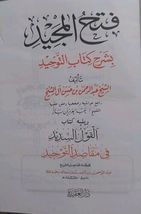 فتح المجيد
بشرح كتاب التوحيد
تأليف
الشيخ عبد الرحمن بن حسن آل الشيخ
ويليه كتاب
القول السديد
في مقاصد التوحيد
دار العقيدة